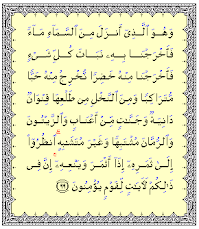 وَهُوَ ٱلَّذِىٓ أَنزَلَ مِنَ ٱلسَّمَآءِ مَآءً
فَأَخْرَجْنَا بِهِۦ نَبَاتَ كُلِّ شَىْءٍ
فَأَخْرَجْنَا مِنْهُ خَضِرًا نُّخْرِجُ مِنْهُ حَبًّا
مُّتَرَاكِبًا وَمِنَ ٱلنَّخْلِ مِن طَلْعِهَا قِنْوَانٌ
دَانِيَةٌ وَجَنَّٰتٍ مِّنْ أَعْنَابٍ وَٱلزَّيْتُونَ
وَٱلرُّمَّانَ مُشْتَبِهًا وَغَيْرَ مُتَشَٰبِهٍ ۗ ٱنظُرُوٓا۟
إِلَىٰ ثَمَرِهِۦٓ إِذَآ أَثْمَرَ وَيَنْعِهِۦٓ ۚ إِنَّ فِى
ذَٰلِكُمْ لَـَٔايَٰتٍ لِّقَوْمٍ يُؤْمِنُونَ ﴿٩٩﴾